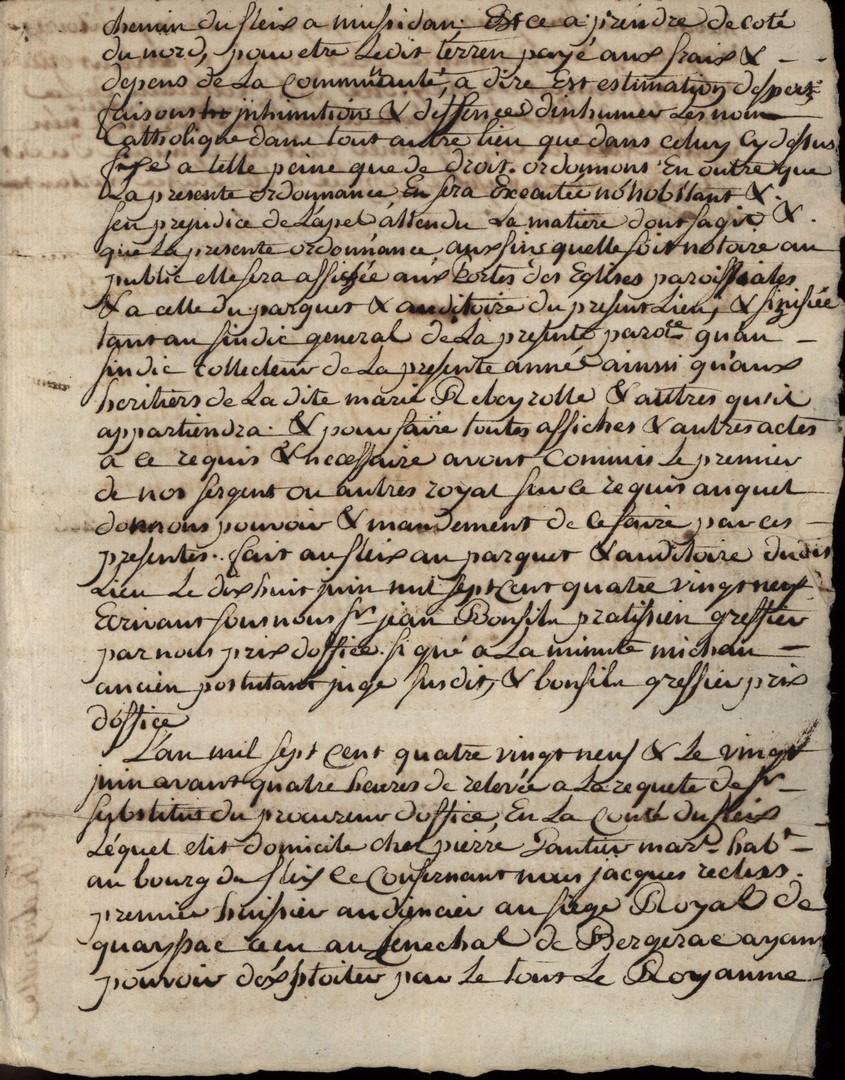 chemin du fleix a mussidan. Est ce a prendre de coté
du nord, pour etre Ledit terren payé aux fraix &
depens de La Communauté, a dire Est estimation dexpert
faisons inhimitions & deffences dinhumer Les non
Catholique dans tout autre lieu que dans celuy cy dessus
fixé a telle peine que de droit. ordonnons En outre que
La presente ordonnance En sera Executée nonobstant &
sen prejudice de Lapel attendu La matiere dont sagit &
que La presente ordonnance aux fins quelle soit notoire au
public elle sera affichée aux Portes des Eglises paroissiales
& a celle du parquet & auditoire du present Lieu, & sinifiée
tant au sindic general de La presente paroisse quau
sindic collecteur de La presente année ainsi quaux
heritiers de La dite marie Rebeyrolle & autres quil
appartiendra. & pour faire toutes affiches & autres actes
a ce requis & necessaire avons Commis Le premier
de nos sergent ou autres royal sur ce requis auquel
donnons pouvoir & mandement de ce faire par ces
presentes. fait au fleix au parquet & auditoire dudit
Lieu Le dix huit juin mil sept Cent quatre vingt neuf
Ecrivant sous nous sr. jean Bonfils pratissien greffier
par nous pris doffice. Signé a La minute michau
ancien postulant juge susdit, & bonfils greffier pris
doffice
L'an mil sept Cent quatre vingt neuf & Le vingt
juin avant quatre heures de relevée a La requete de sr.
substitut du procureur doffice En La Conté du fleix
Lequel elit domicile chez pierre Gautier mard. habt.
au bourg du fleix Ce Confernant nous jacques reclus
premier huissier audiencier au siege Royal de
reçu au senechal de Bergerac ayant
pouvoir dexploiter par Le tout Le Royaume